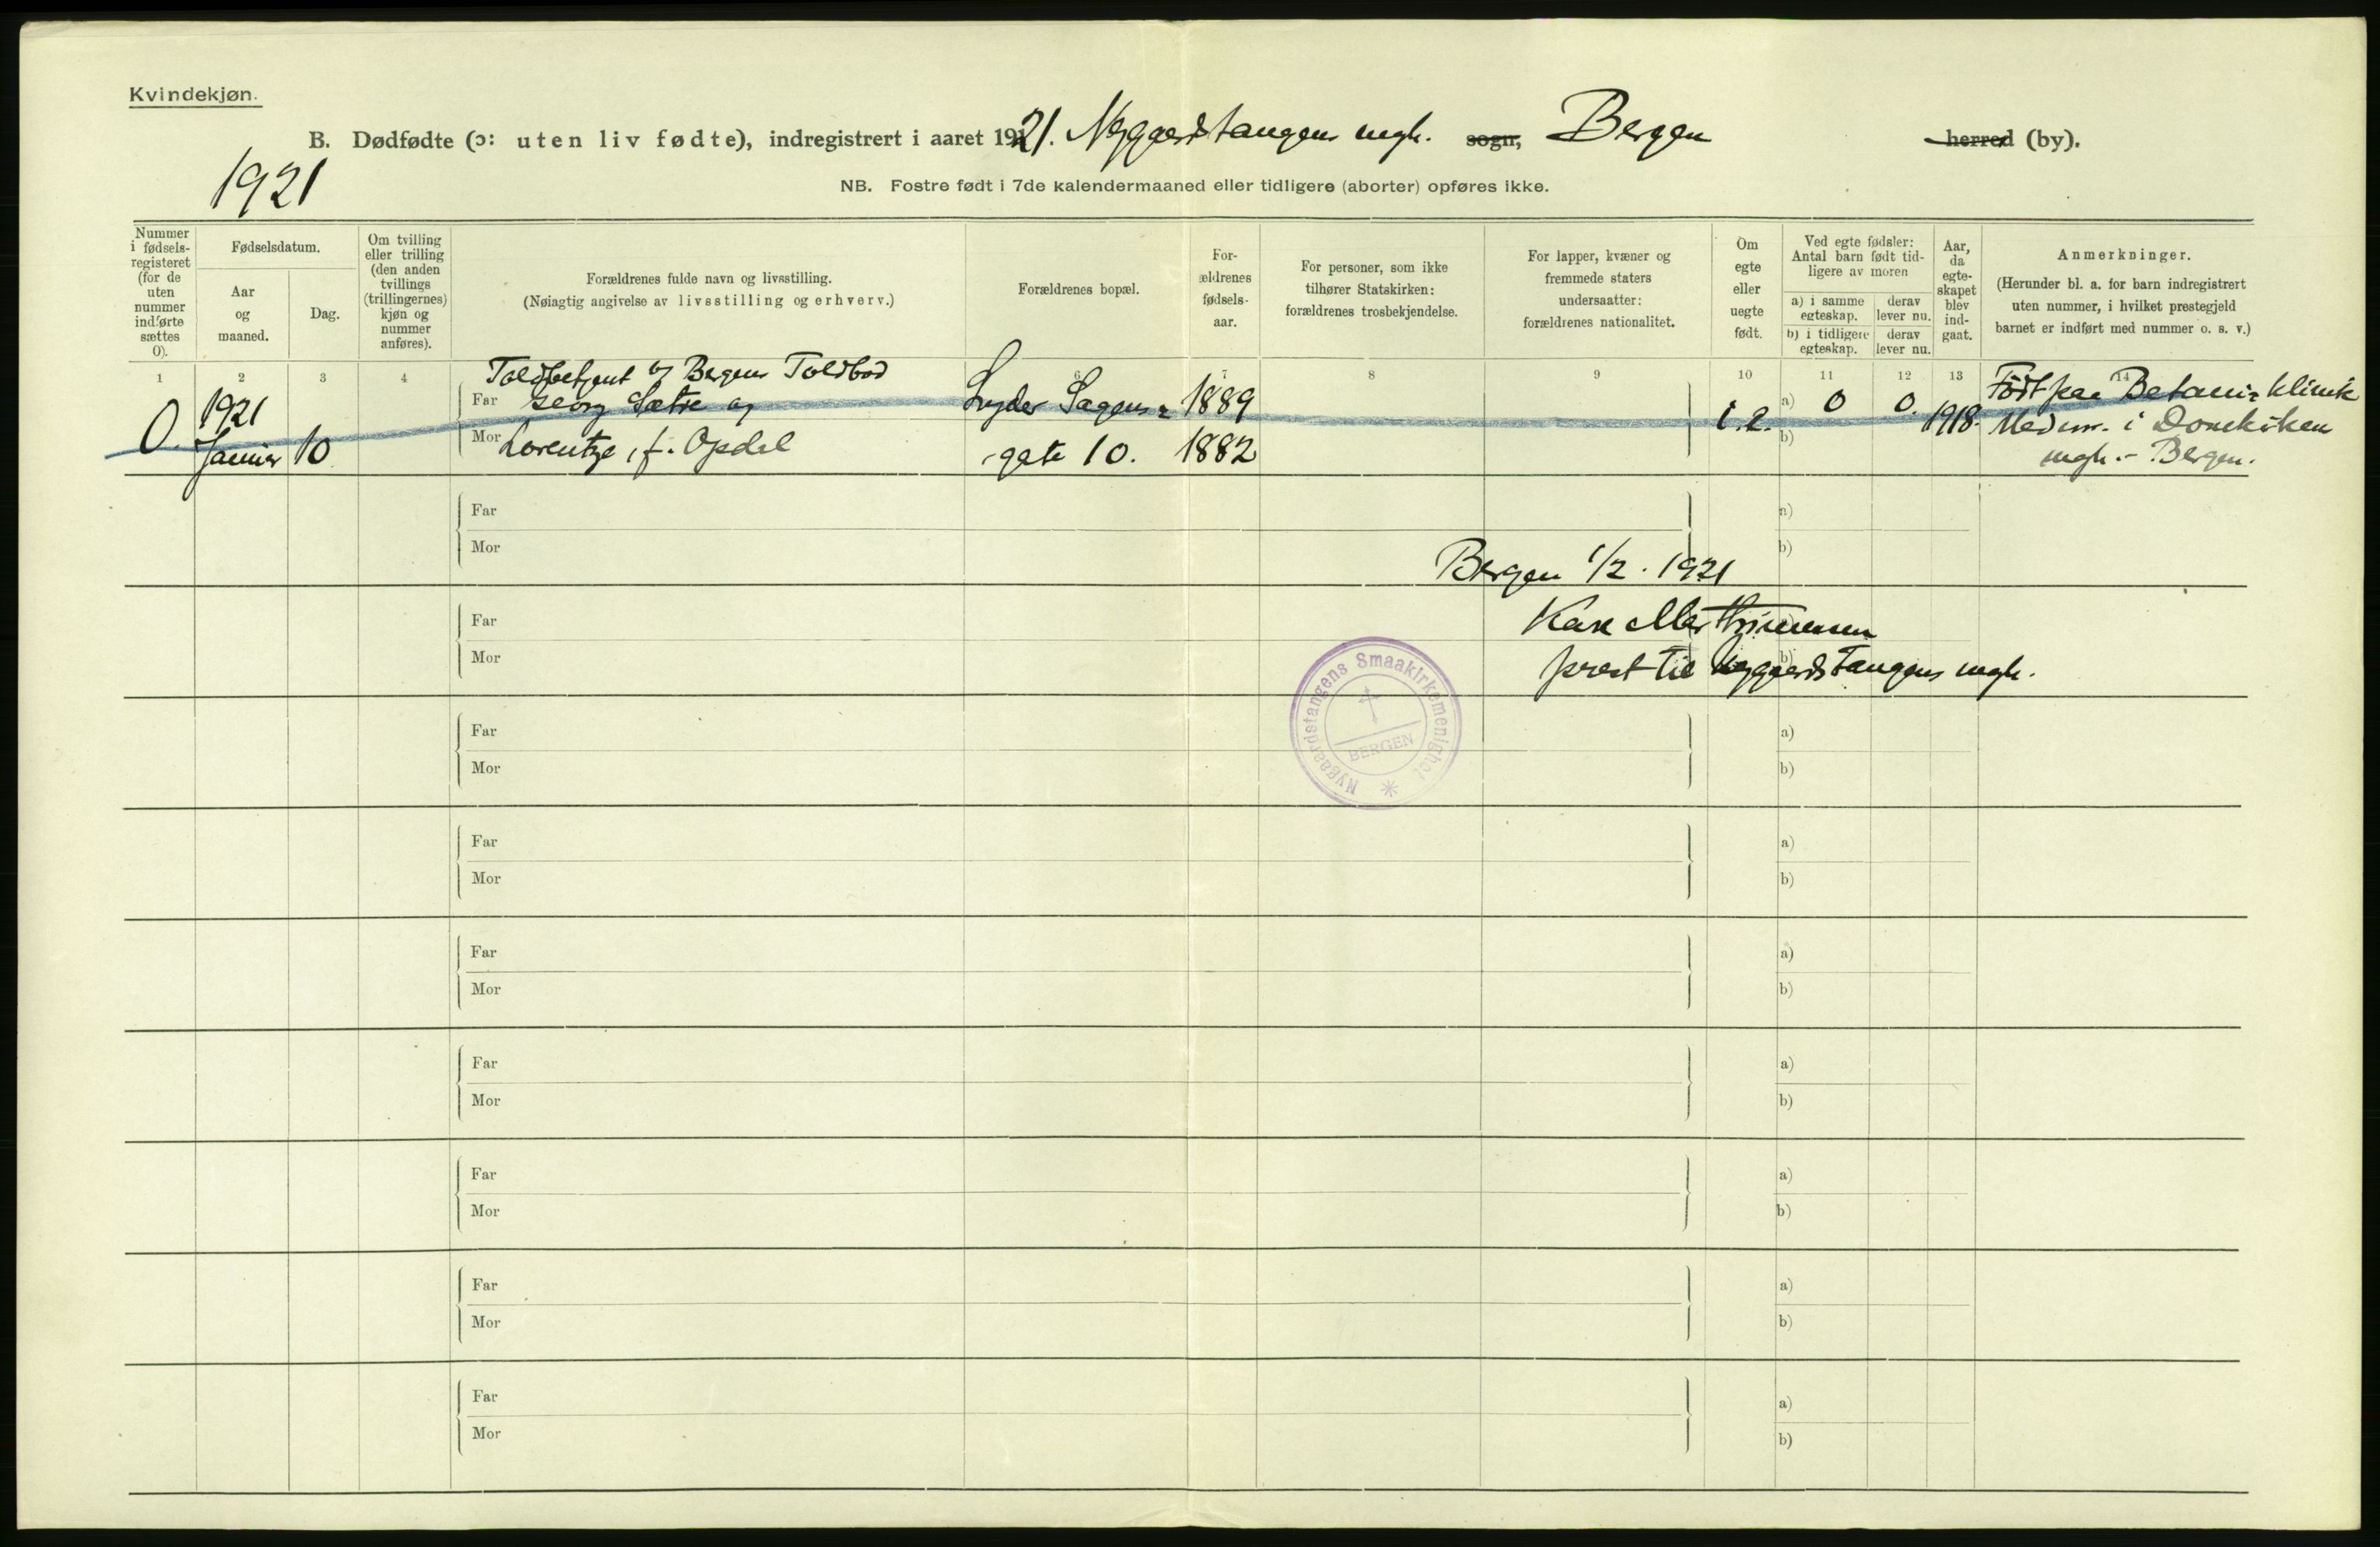 Kvindekjøn.
B. Dødfødte (ɔ: uten liv fødte), indregistrert i aaret 1921. Nygaardstangens mgh. sogn, Bergen herred (by).
1921
NB. Fostre født i 7de kalendermaaned eller tidligere (aborter) opføres ikke.
Nummer
i fødsels-
registeret
(for de
uten
nummer
indførte
sættes
0).
Fødselsdatum.
Aar
og
maaned.
Dag.
Om tvilling
eller trilling
(den anden
tvillings
(trillingernes)
kjøn og
nummer
anføres).
Forældrenes fulde navn og livsstilling.
(Nøiagtig angivelse av livsstilling og erhverv.)
Forældrenes bopæl.
For-
ældrenes
fødsels-
aar.
For personer, som ikke
tilhører Statskirken:
forældrenes trosbekjendelse.
For lapper, kvæner og
fremmede staters
undersaatter:
forældrenes nationalitet.
Om
egte
eller
uegte
født.
Ved egte fødsler:
Antal barn født tid-
ligere av moren
a) i samme
egteskap.
derav
lever nu.
b) i tidligere
egteskap.
derav
lever nu.
Aar,
da
egte-
skapet
blev
ind-
gaat.
Anmerkninger.
(Herunder bl. a. for barn indregistrert
uten nummer, i hvilket prestegjeld
barnet er indført med nummer o. s. v.)
1 2 3 4 6 7 8 9 10 11 12 13 14
Toldbetjent v/ Bergens Toldbod
0. 1921 Far Georg Sætre og Lyder Sagens- 1889 a) 0 0. 1918. Født paa Betani- klinik
Januar 10 Mor Lorentze, f. Opdal gate 10. 1882 b) Med nr. i Domkirken
mgh. - Bergen.
Far a)
Mor b)
Bergen 1/2. 1921
Far
Mor b)
prest til Nygaardstangens mgh.
Nygaardstangens Smaakirkemenighet
BERGEN
Far a)
Mor b)
Far a)
Mor b)
Far a)
Mor b)
Far a)
Mor b)
Far a)
Mor b)
Far a)
Mor b)
Far a)
Mor b)